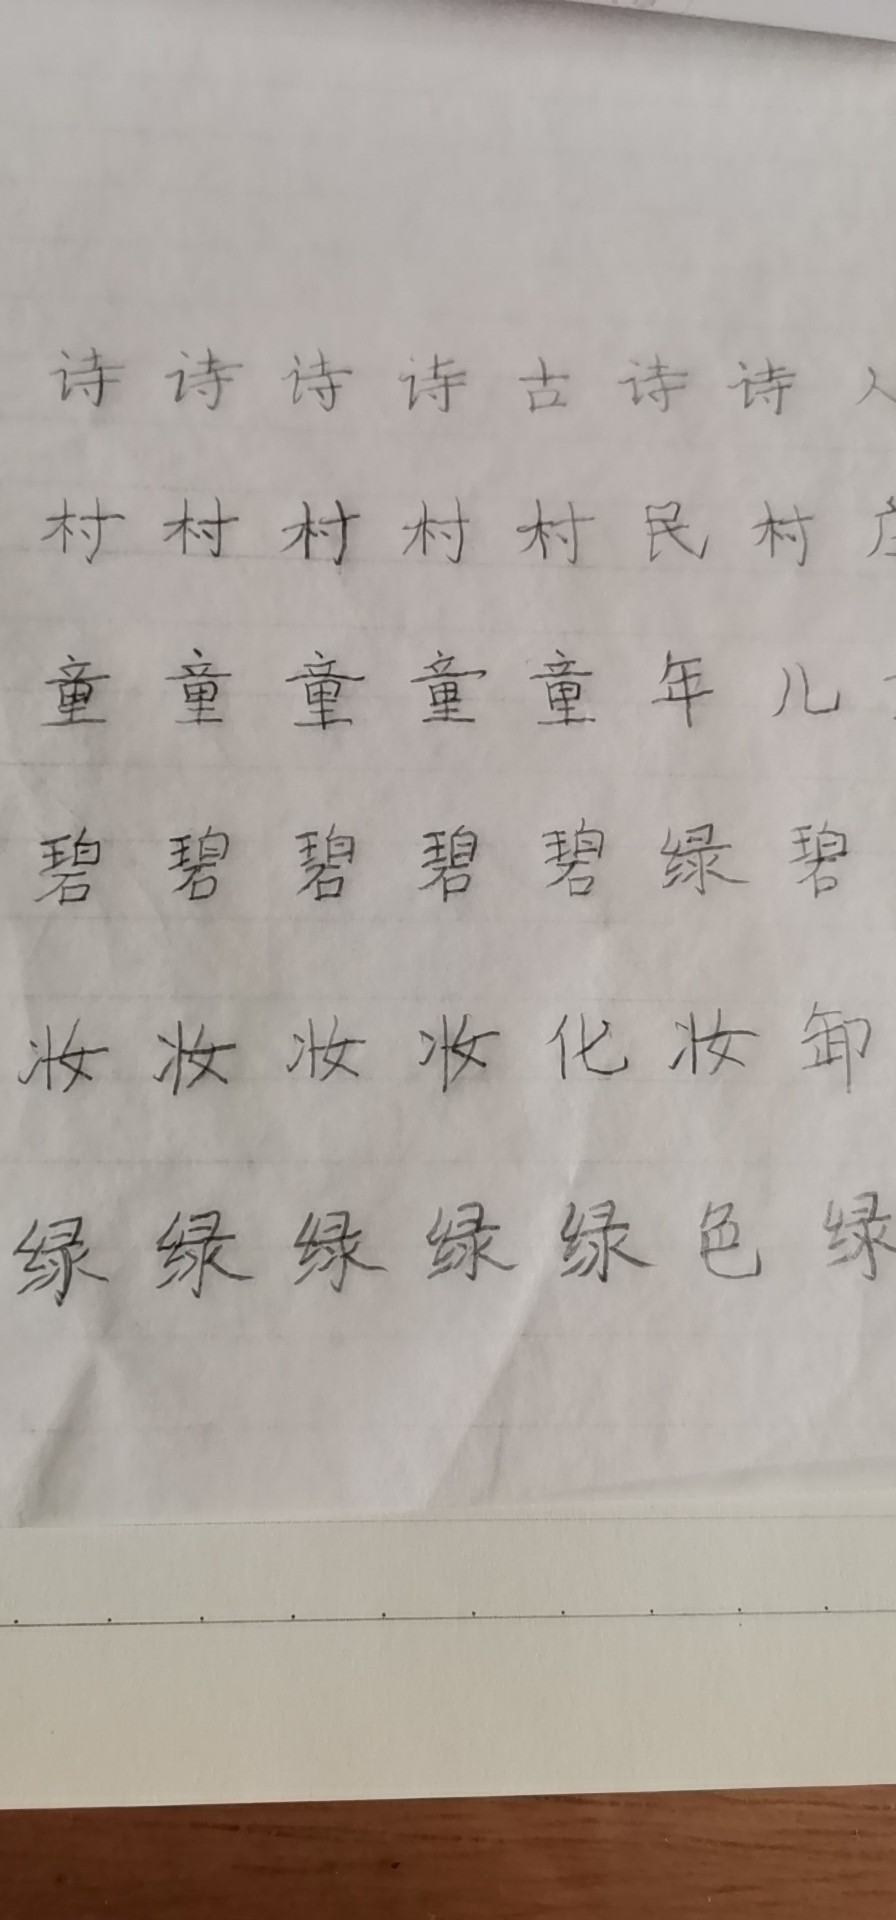 诗诗诗诗古诗诗人
村村村村村民村
童童童童童年儿
碧碧碧碧碧绿碧
妆妆妆妆化妆卸
绿绿绿绿绿色绿